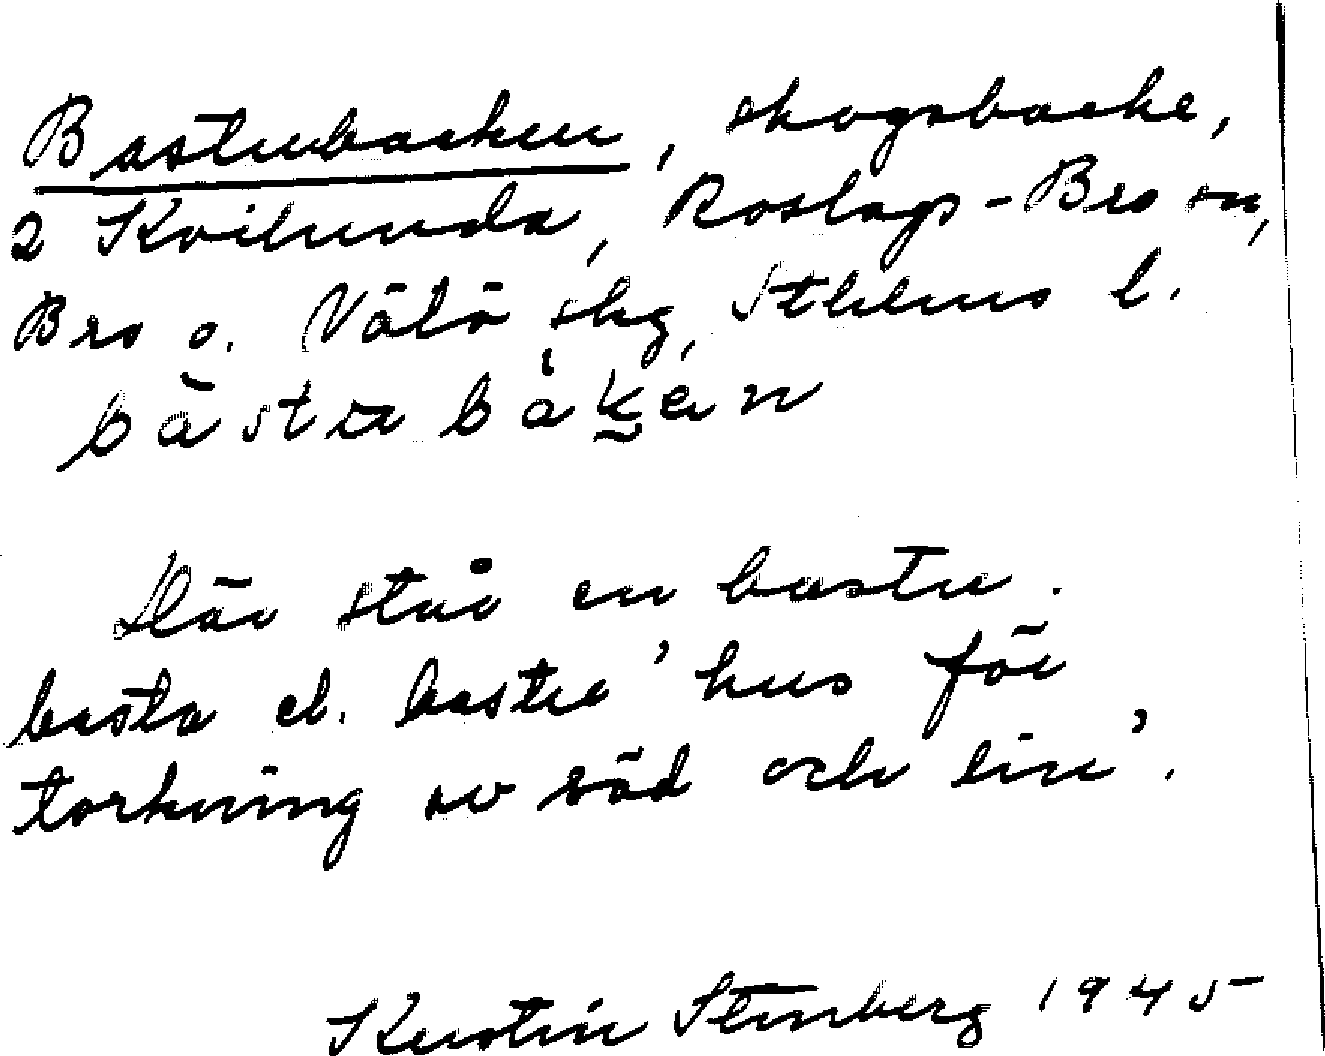 Bastubacken, skogsbacke,
2 Kvilunda, Roslags-Bro sn,
Bro o. Vätö skg, Sthlms l.
bàstu bàken
Där står en bastu.
basta el. bastu 'hus för
torkning av säd och lin'.
Kerstin Stenberg 1945